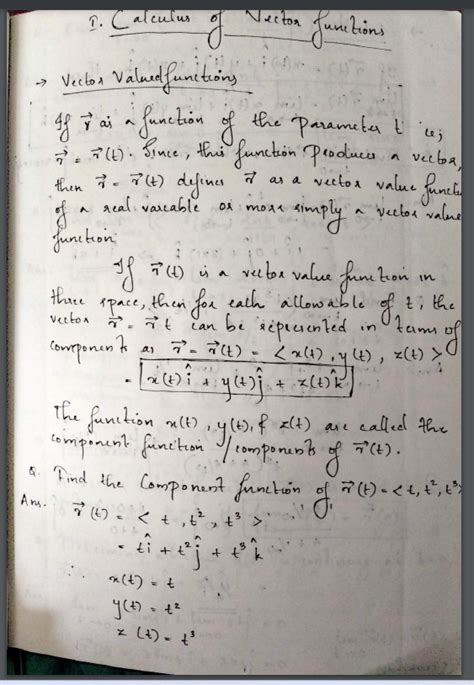 I. Calculus of Vector functions
→ Vector Valued functions
If r⃗ as a function of the parameter t ie;
r⃗ = r⃗(t). Since, this function produces a vector,
then r⃗ = r⃗(t) defines r⃗ as a vector value functi
of a real variable or more simply a vector value
function
If r⃗(t) is a vector value function in
three space, then for each allowable of t, the
vector r⃗ = r⃗ t can be represented in terms of
components as r⃗ = r⃗(t) = < x(t), y(t), z(t) >
= x(t) î + y(t) ĵ + z(t) k̂
The function x(t), y(t), & z(t) are called the
component function / components of r⃗(t).
Q. Find the Component function of r⃗(t) = < t, t², t³ >
Ans. r⃗(t) = < t, t², t³ >
= t î + t² ĵ + t³ k̂
∴ x(t) = t
y(t) = t²
z(t) = t³